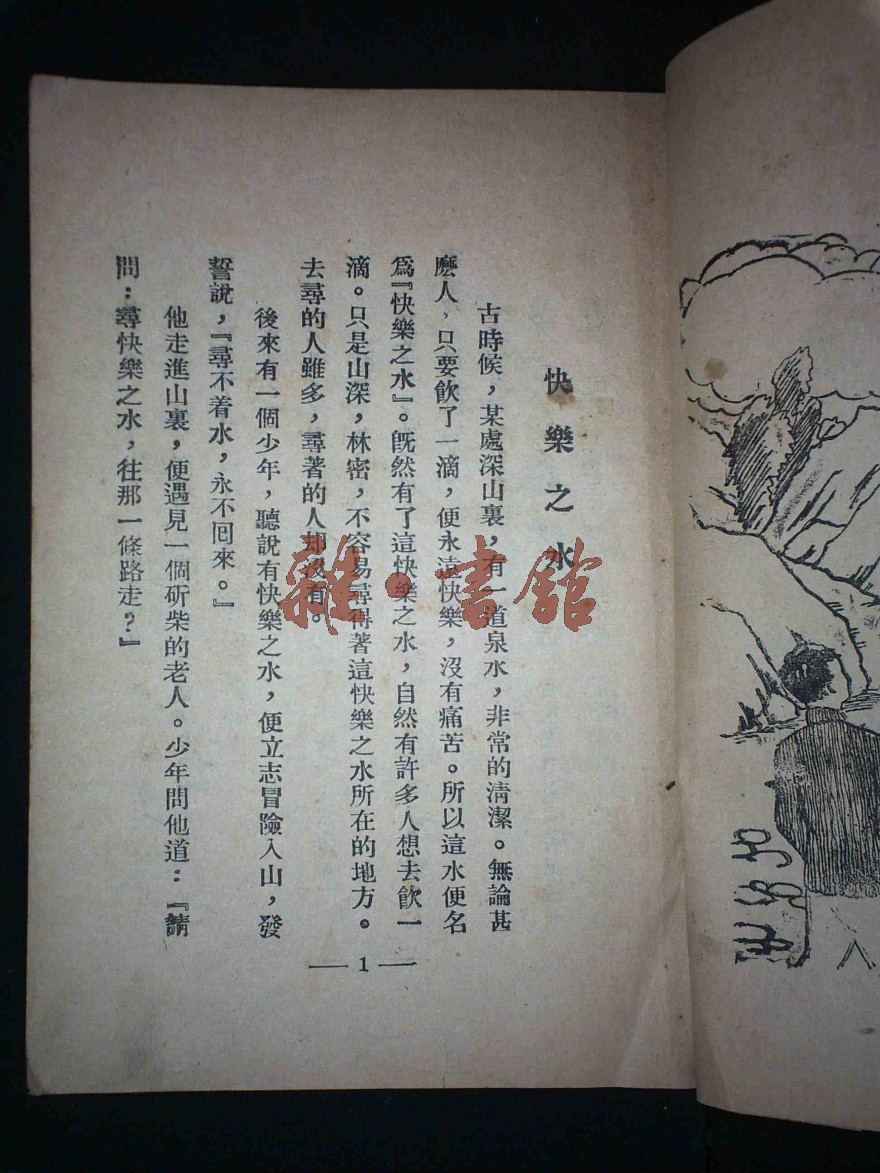 快樂之水
古時候，某處深山裏，有一道泉水，非常的清潔。無論甚
麽人，只要飮了一滴，便永遠快樂，沒有痛苦。所以這水便名
爲『快樂之水』。旣然有了這快樂之水，自然有許多人想去飮一
滴。只是山深，林密，不容易尋得著這快樂之水所在的地方。
去尋的人雖多，尋著的人却沒有。
後來有一個少年，聽說有快樂之水，便立志冒險入山，發
誓說，『尋不着水，永不囘來。』
他走進山裏，便遇見一個斫柴的老人。少年問他道：『請
問：尋快樂之水，往那一條路走？』
— 1 —
雜·書館